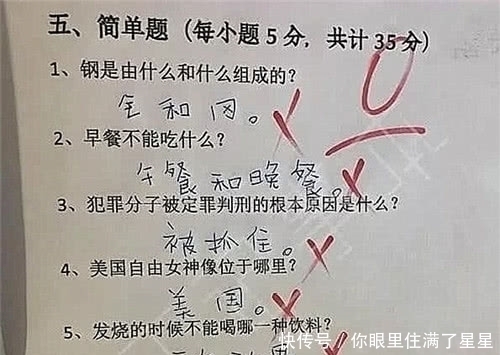 五、简单题（每小题5分，共计35分）
0
1、钢是由什么和什么组成的？
全和冈。
2、早餐不能吃什么？
午餐和晚餐。
3、犯罪分子被定罪判刑的根本原因是什么？
被抓住。
4、美国自由女神像位于哪里？
美国。
5、发烧的时候不能喝哪一种饮料？
快传号／你眼里住满了星星